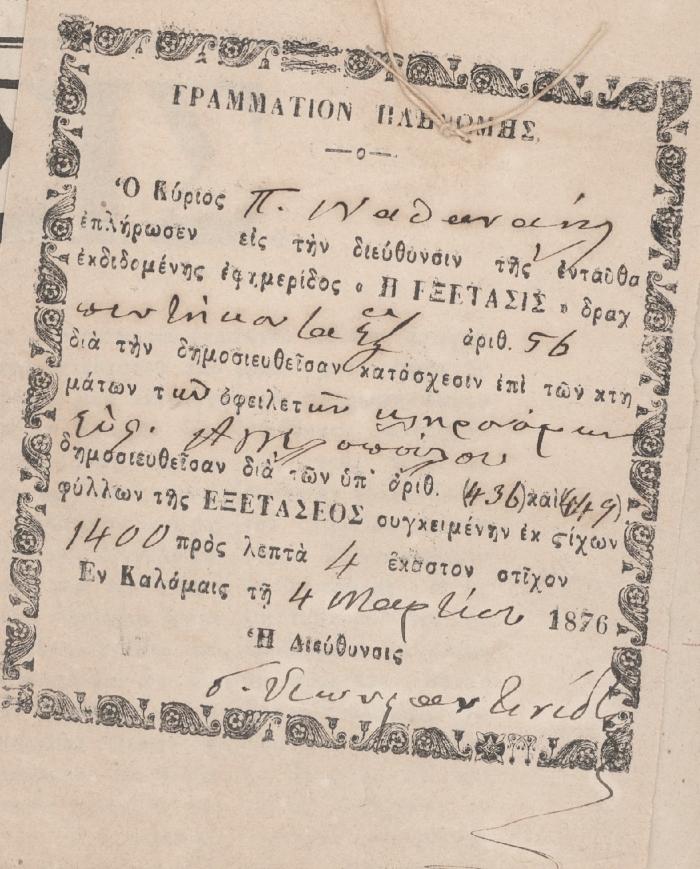 ΓΡΑΜΜΑΤΙΟΝ ΠΛΗΡΩΜΗΣ.
Ὁ Κύριος Π. Ναθαναήλ
ἐπλήρωσεν εἰς τὴν διεύθυνσιν τῆς ἐνταῦθα
ἐκδιδομένης ἐφημερίδος « Η ΕΞΕΤΑΣΙΣ » δραχ
πεντήκοντα ἓξ ἀριθ. 56
διὰ τὴν δημοσιευθεῖσαν κατάσχεσιν ἐπὶ τῶν κτη
μάτων τῶν ὀφειλετῶν κληρονόμων
δημοσιευθεῖσαν διὰ τῶν ὑπ' ἀριθ. (436) καὶ (449)
φύλλων τῆς ΕΞΕΤΑΣΕΟΣ συγκειμένην ἐκ ςίχων
1400 πρὸς λεπτὰ 4 ἕκαστον στῖχον
Εν Καλάμαις τῇ 4 Μαρτίου 1876
Ἡ Διεύθυνσις